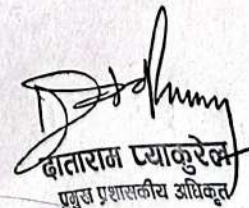 दाताराम प्याकुरेल
प्रमुख प्रशासकीय अधिकृत